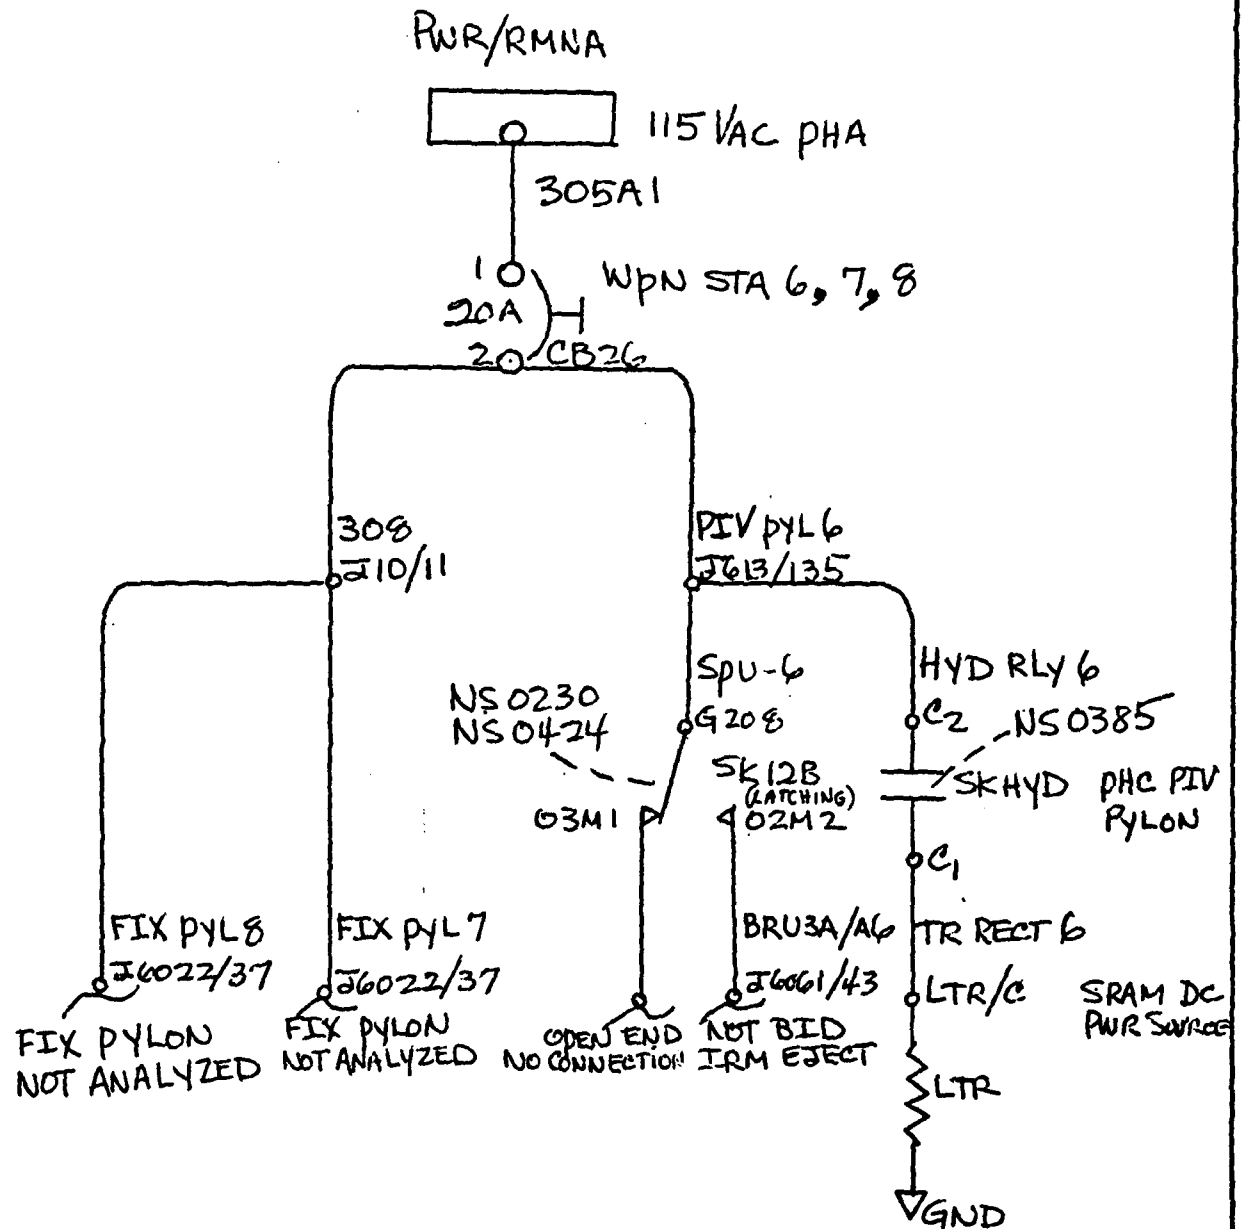 PWR/RMNA
115 VAC PHA
305A1
1
WPN STA 6, 7, 8
20A
2
CB26
308
J10/11
PIV PYL 6
J613/135
SPU-6
G208
HYD RLY 6
C2
NS 0230
NS 0424
NS 0385
SK12B
(LATCHING)
03M1
02M2
SKHYD
PHC PIV
PYLON
C1
FIX PYL 8
J6022/37
FIX PYL 7
J6022/37
BRU3A/A6
J6061/43
TR RECT 6
LTR/C
SRAM DC
PWR SOURCE
FIX PYLON
NOT ANALYZED
FIX PYLON
NOT ANALYZED
OPEN END
NO CONNECTION
NOT BID
IRM EJECT
LTR
GND